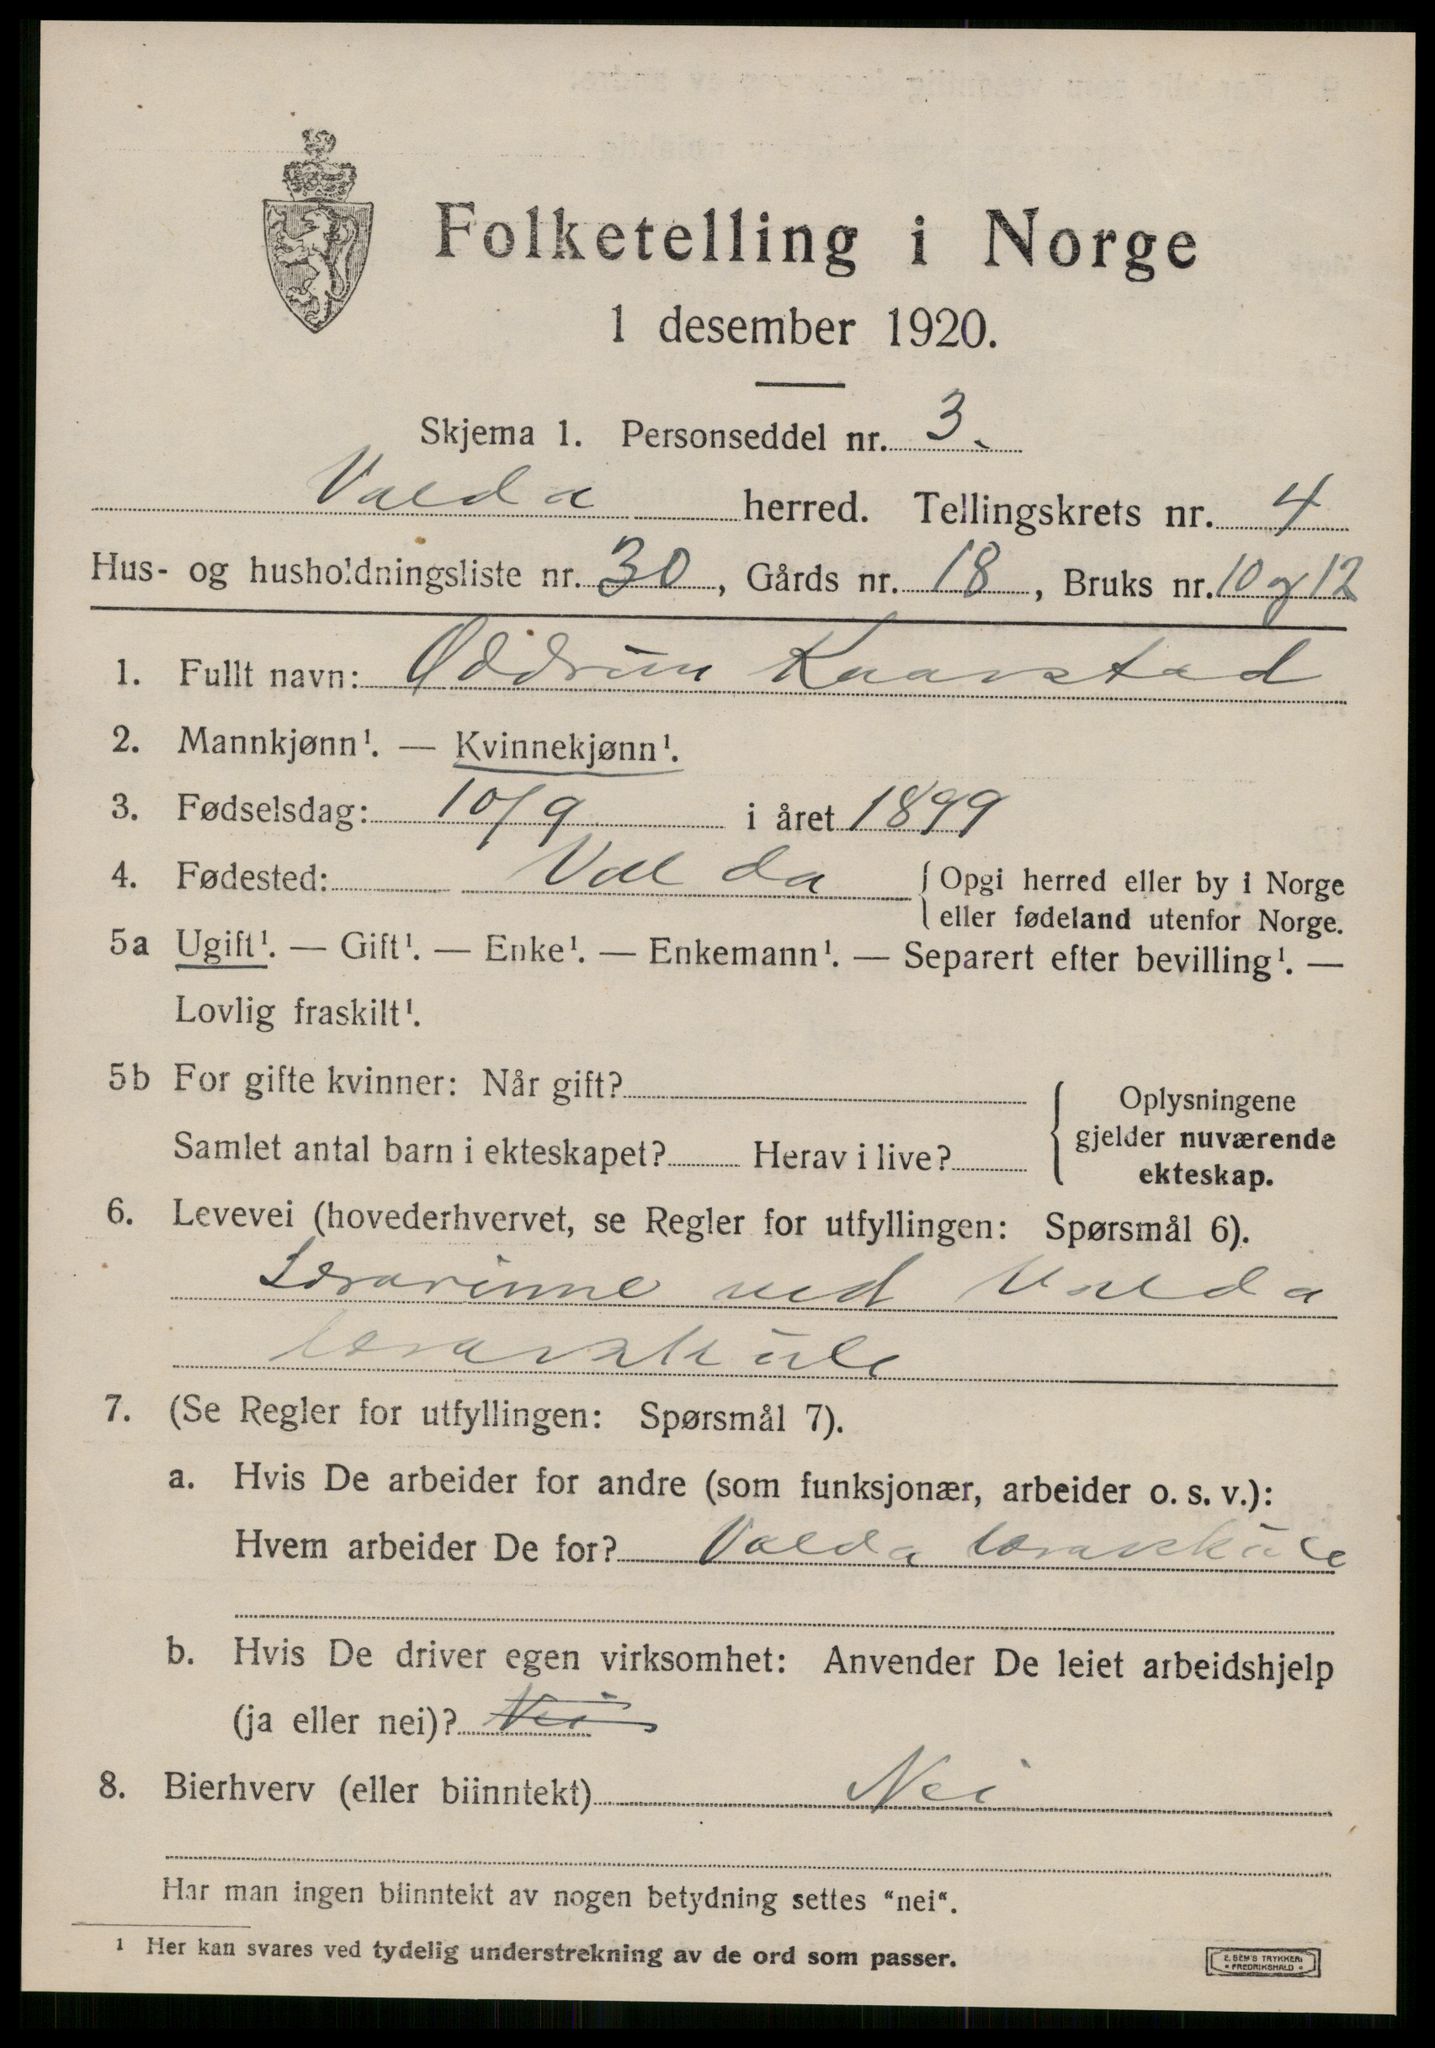 Folketelling i Norge
1 desember 1920.
Skjema 1. Personseddel nr. 3.
Volda herred. Tellingskrets nr. 4
Hus- og husholdningsliste nr. 30, Gårds nr. 18, Bruks nr. 10 og 12
1. Fullt navn: Oddrun Kaarstad
2. Mannkjønn¹. — Kvinnekjønn¹.
3. Fødselsdag: 10/9 i året 1899
4. Fødested: Volda { Opgi herred eller by i Norge
eller fødeland utenfor Norge.
5a Ugift¹. — Gift¹. — Enke¹. — Enkemann¹. — Separert efter bevilling¹. —
Lovlig fraskilt¹.
5b For gifte kvinner: Når gift?
Samlet antal barn i ekteskapet? Herav i live?
Oplysningene
gjelder nuværende
ekteskap.
6. Levevei (hovederhvervet, se Regler for utfyllingen: Spørsmål 6).
Lærarinne ved Volda
lærarskule
7. (Se Regler for utfyllingen: Spørsmål 7).
a. Hvis De arbeider for andre (som funksjonær, arbeider o. s. v.):
Hvem arbeider De for? Volda lærarskule
b. Hvis De driver egen virksomhet: Anvender De leiet arbeidshjelp
(ja eller nei)? Nei
8. Bierhverv (eller biinntekt) Nei
Har man ingen biinntekt av nogen betydning settes "nei".
¹ Her kan svares ved tydelig understrekning av de ord som passer.
E. SEM'S TRYKKERI
FREDRIKSHALD